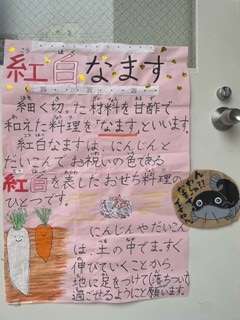 紅白なます
細く切った材料を甘酢で
和えた料理を「なます」といいます。
紅白なますは、にんじんと
だいこんで お祝いの色である
紅白を表したおせち料理の
ひとつです。
にんじんやだいこん
は、土の中でまっすぐ
伸びていくことから、
地に足をつけて(落ちついて)
過ごせるようにと願います。